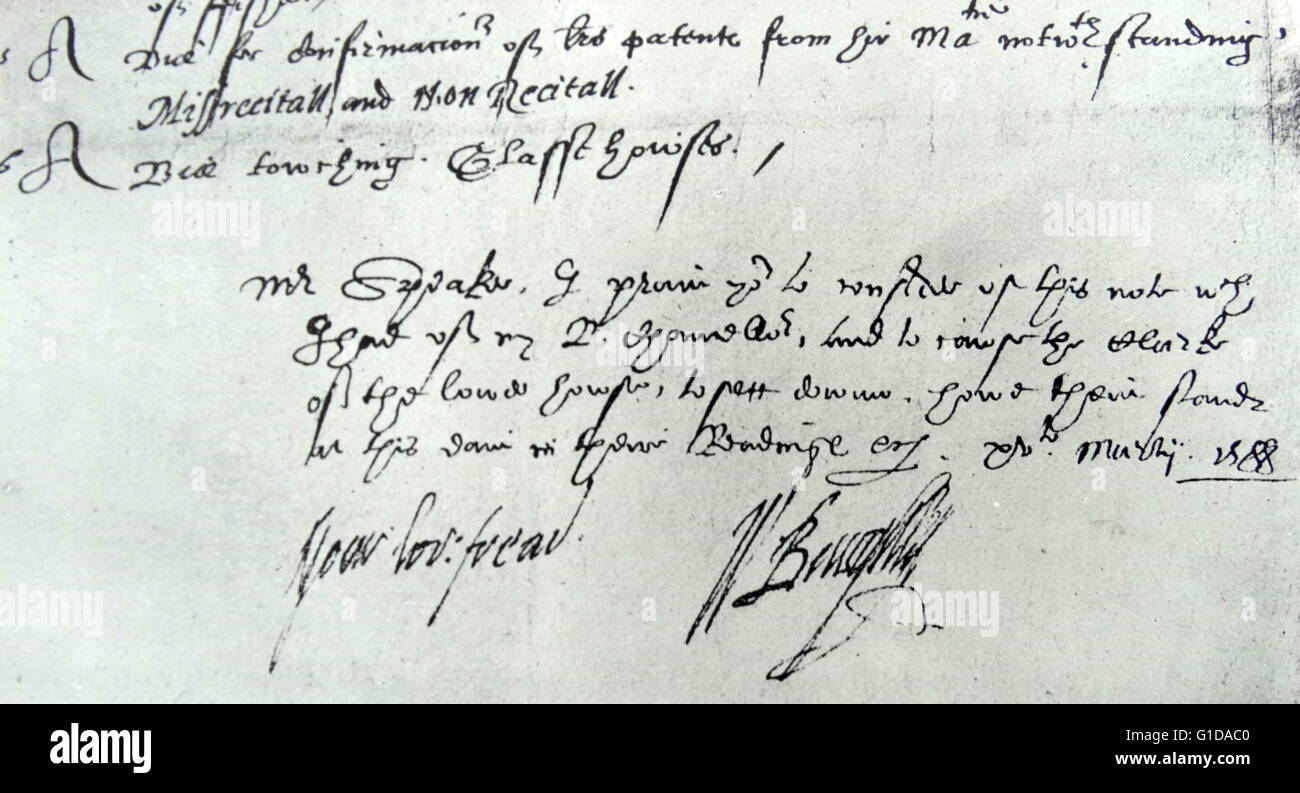 A Bill for Confirmacion of lres patente from hir Matie notwthstanding,
Missrecitall, and Non Recitall.
A Bill towching Glasse howses.
Mr Speaker, I praie yow to consider of this note wch
I had of my L. Chauncellor, and to cawse the Clarke
of the lower howse, to sett downe, howe theie stand
at this daie in there Readinge &c. Martij. 1588
Your lov: frend
W Burghley
alamy
G1DAC0
www.alamy.com